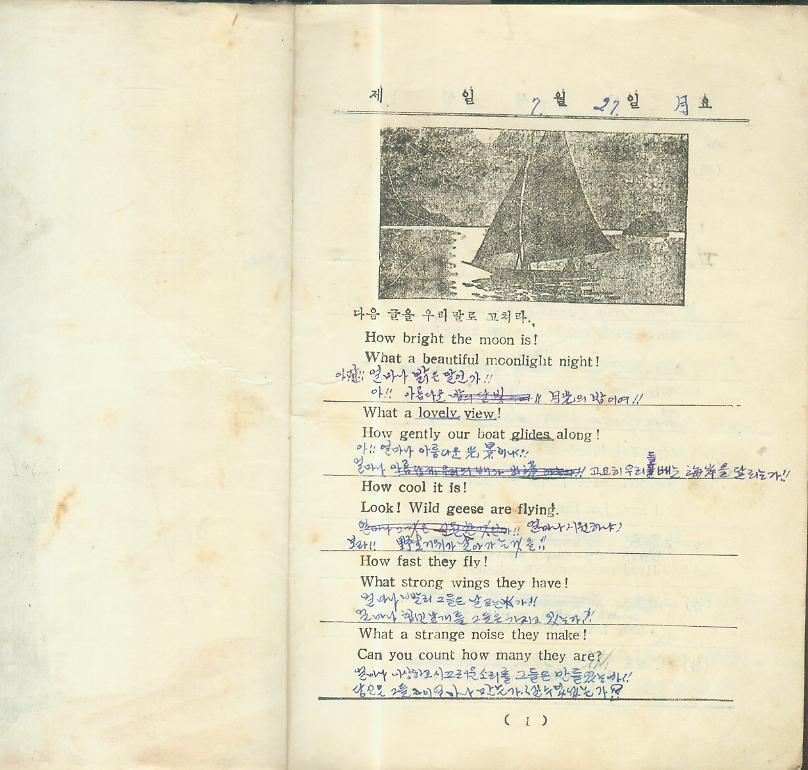 제 일 7.월 27.일 月요
다음 글을 우리말로 고쳐라.
How bright the moon is!
What a beautiful moonlight night!
얼마나 밝은 달인가!!
아!! 아름다운 月光의 밤이여!!
What a lovely view!
How gently our boat glides along!
아!! 얼마나 아름다운 光景이냐!!
얼마나 고요히 우리들 배는 海岸을 달리는가!!
How cool it is!
Look! Wild geese are flying!.
얼마나 시원하냐?
보라!! 野生거위가 날아가는 것을!!
How fast they fly!
What strong wings they have!
얼마나 빨리 그들은
얼마나 힘센 날개를 그들은 가지고 있는가!!
What a strange noise they make!
Can you count how many they are?
얼마나 이상하고 시끄러운 소리를 그들은 만들
( 1 )